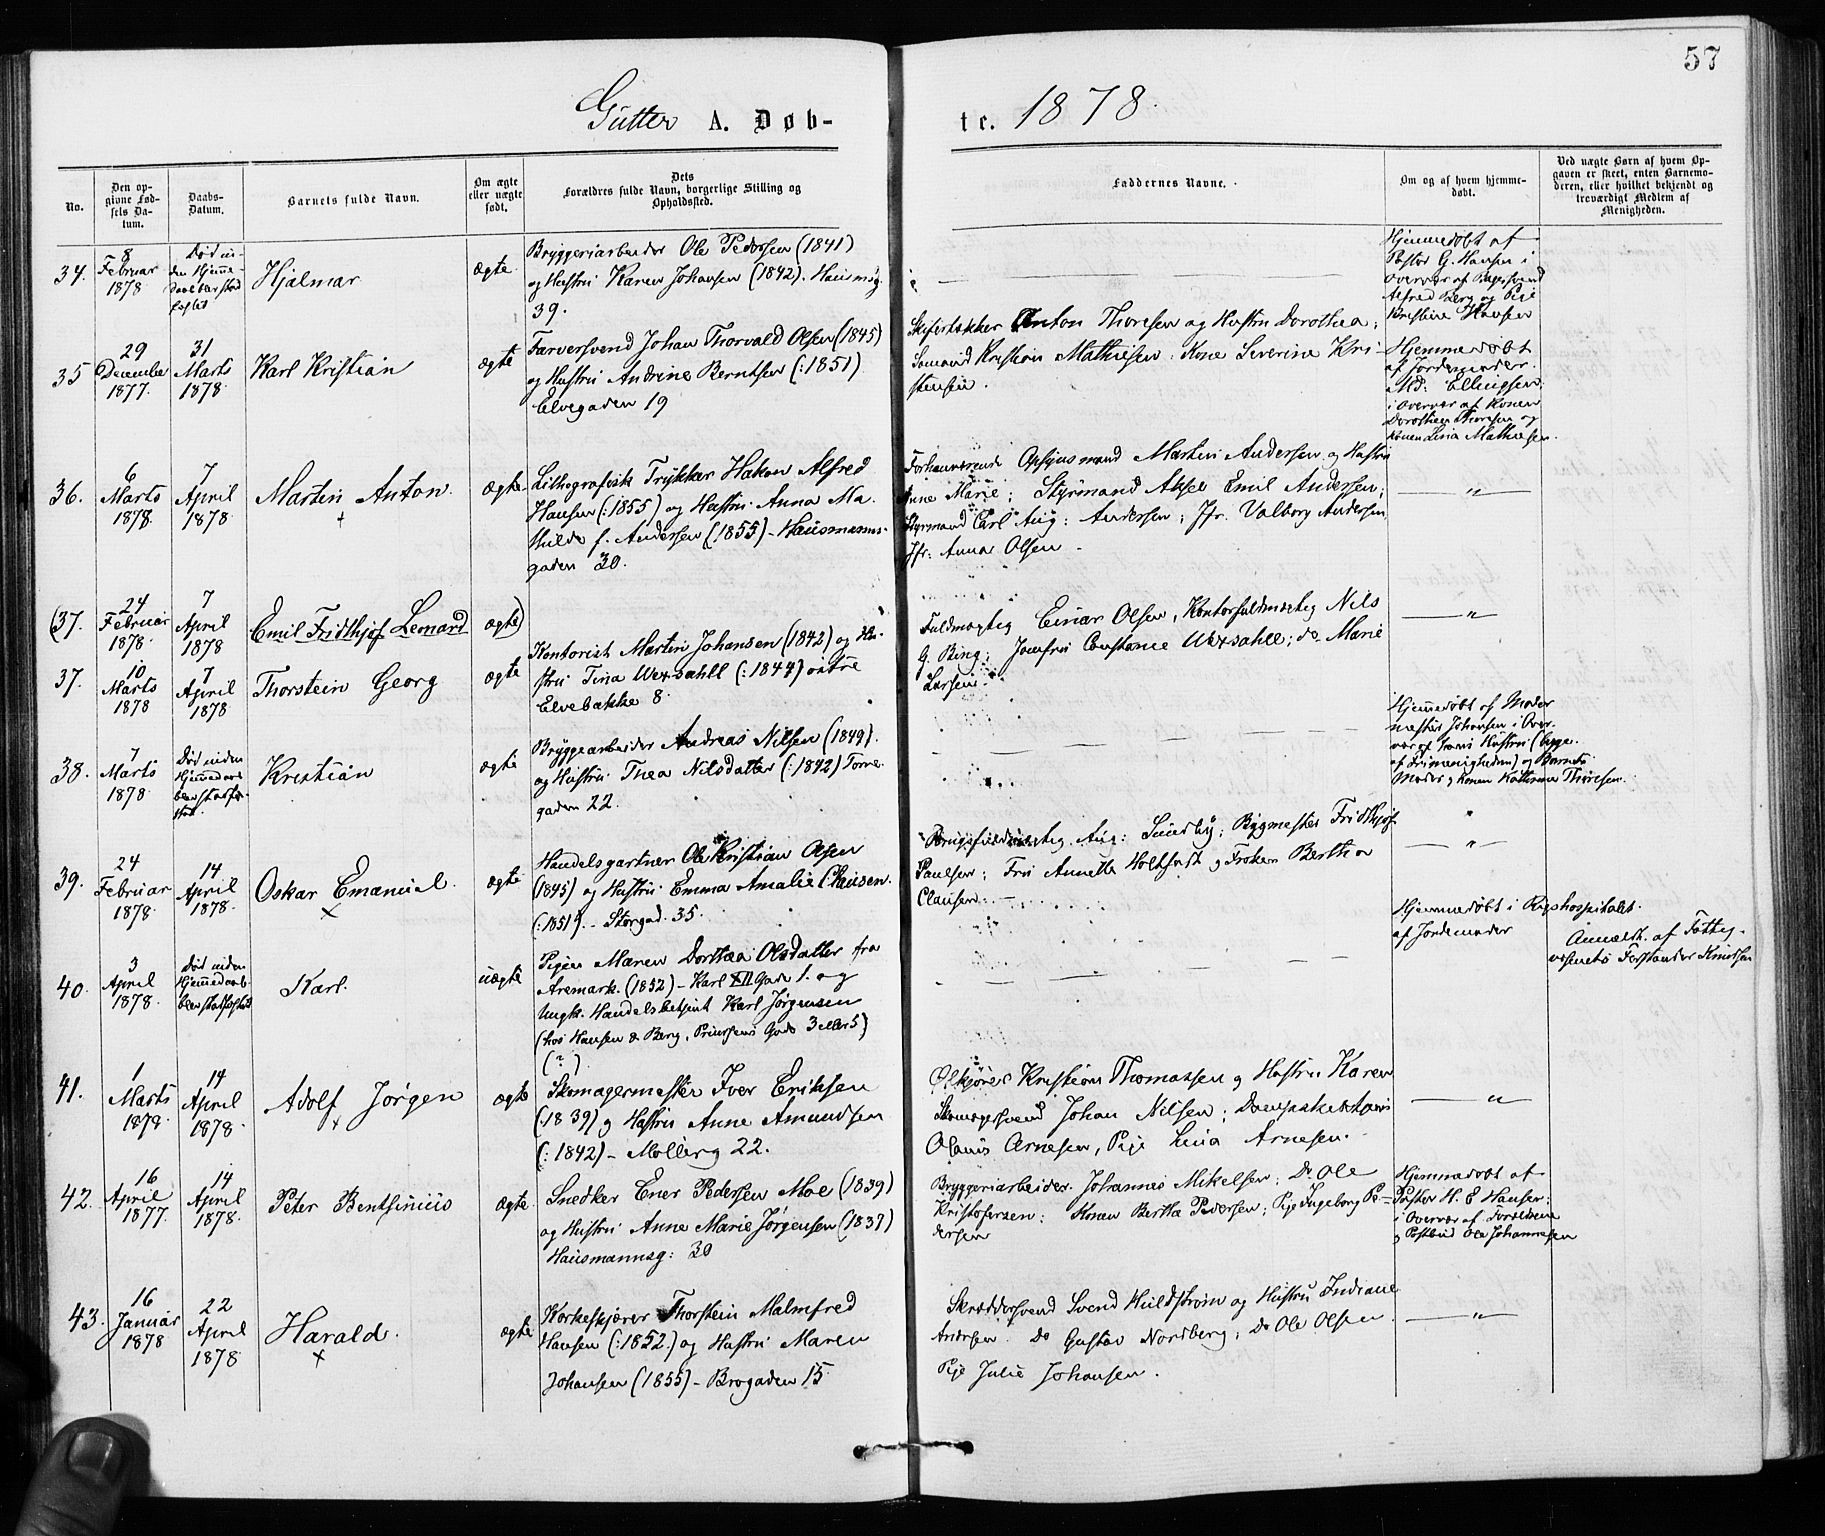 57
Gutter A. Døb-
te. 1878.
No.
Den op-
givne Fød-
sels Da-
tum.
Daabs-
Datum.
Barnets fulde Navn.
Om ægte
eller uægte
født.
Dets
Forældres fulde Navn, borgerlige Stilling og
Opholdssted.
Faddernes Navne.
Om og af hvem hjemme-
døbt.
Ved uægte Børn af hvem Op-
gaven er skeet, enten Barnemo-
deren, eller hvilket bekjendt og
troværdigt Medlem af
Menigheden.
34.
8
Februar
1878
Død in-
den Hjemme-
Hjalmar
ægte.
Bryggeriarbeider Ole Pedersen (1841)
og Hustru Karen Johansen (1842). Hausmsg.
39.
Hjemmedøbt af
Pastor G. Hansen i
Overvær af Bagersvend
Alfred Berg og Pige
Kristine Hansen
35
29
December
1877.
31
Marts
1878
Karl Kristian
ægte
Farversvend Johan Thorvald Olsen (1845)
og Hustru Andrine Berntsen (:1851)
Elvegaden 19
Skifertækker Anton Thoresen og Hustru Dorothea;
Sømand Kristian Mathiesen; Kone Severine Kri-
stensen.
Hjemmedøbt
af Jordemoder
Md: Ellingsen;
i Overvær af Konen
Dorothea Thoresen og
Konen Lina Mathiesen.
36.
6
Marts
1878.
7
April
1878
Martin Anton.
+
ægte
Lithografisk Trykker Hakon Alfred
Hansen (:1855) og Hustru Anna Ma-
thilde f. Andersen (1855) - Hausmanns-
gaden 30.
Forhenværende Opsynsmand Martin Andersen og Hustru
Anne Marie; Styrmand Axel Emil Andersen;
Styrmand Carl Aug: Andersen; Jfr. Valborg Andersen
Jfr: Anna Olsen -
— " —
(37.
24
Februar
1878.
7
April
1878
Emil Fridthjof Lenard
ægte)
37.
10
Marts
1878
7
April
1878
Thorstein Georg
ægte
Kontorist Martin Johansen (1842) og Hu-
stru Tina Wexsahll (:1844) østre
Elvebakke 8.
Fuldmægtig Einar Olsen, Kontorfuldmægtig Nils
G. Bing; Jomfru Constance Wexsahll; do Marie
Larsen.
— " —
38.
7
Marts
1878
Død inden
Hjemmedaab
Kristian
ægte
Bryggearbeider Andreas Nilsen (1849).
og Hustru Thea Nilsdatter (:1842) Torve-
gaden 22.
Hjemmedøbt af Moder
mester Johansen i Over-
vær af hans Hustru (begge
af Frimenigheden) og Barnets
Moder, Konen Kathrine Thoresen.
39.
24
Februar
1878.
14
April
1878.
Oskar Emanuel.
×
ægte
Handelsgartner Ole Kristian Olsen
(1845) og Hustru Emma Amalie Clausen.
(:1851). - Storgad. 35.
Brugsfuldmægtig Aug: Sundby; Bygmester Fridthjof
Paulsen; Fru Annette Holtfust, Frøken Bertha
Clausen. —
— " —
40.
3
April
1878.
Død inden
Hjemmedaab
Karl.
uægte
Pigen Maren Dorthea Olsdatter fra
Aremark. (1852) - Karl XII Gade 1. og
Ungk. Handelsbetjent Karl Jørgensen
(hos Hansen & Berg, Prinsens Gade 3 eller 5)
(?)
Hjemmedøbt i Rigshospitalet
af Jordemoder
Anmeldt. af Fattig-
væsenets Forstander Knutsen
41.
1
Marts
1878.
14
April
1878.
Adolf Jørgen
×
ægte
Skomagermester Iver Eriksen
(1839) og Hustru Anne Amundsen
(:1842) - Møllerg 22.
Ølkjører Kristian Thomassen og Hustru Karen
Skomagersvend Johan Nilsen;
Olaus Arnesen, Pige Lina Arnesen.
— " —
42.
16
April
1877.
14
April
1878.
Peter Bentsinius
ægte.
Snedker Ener Pedersen Moe (1839)
og Hustru Anne Marie Jørgensen (1837)
Hausmannsg: 30
Bryggeriarbeider Johannes Mikelsen; Do Ole
Kristofersen; Konen Bertha Pedersen; Pige Ingeborg Pe-
dersen
Hjemmedøbt af
Pastor H. E Hansen:
i Overvær af Forældrene
og Postbud Ole Johannesen
43.
16
Januar
1878
22
April
1878
Harald.
×
ægte
Korkeskjærer Thorstein Malmfred
Hansen (:1852) og Hustru Maren
Johansen (1855) - Brogaden 15
Skræddersvend Svend Huldstrøm og Hustru Indiane
Andersen. Do Gustav Nordberg, Do Ole Olsen.
Pige Julie Johansen.
— " —